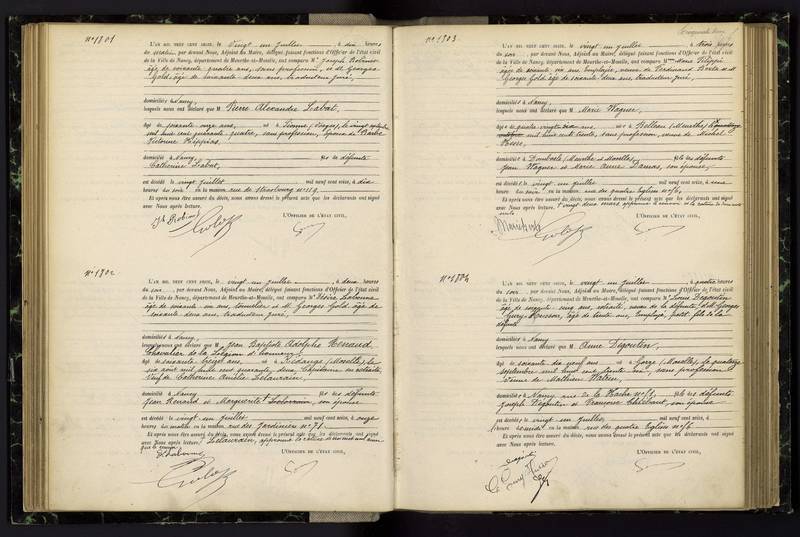 N° 1301
L'AN MIL NEUF CENT SEIZE, le vingt un juillet, à dix heures
du matin, par devant Nous, Adjoint au Maire, délégué faisant fonctions d'Officier de l'état civil
de la Ville de Nancy, département de Meurthe-et-Moselle, ont comparu M. Joseph
âgé de soixante quatre ans, sans profession, et M. Georges
Gold, âgé de soixante deux ans, traducteur juré,
domiciliés à Nancy,
lesquels nous ont déclaré que M Pierre Alexandre Labat,
âgé de soixante onze ans, né à (Vosges), le vingt
mil huit cent quarante quatre, sans profession, époux de Barbe
Victorine
domicilié à Nancy, fils de défunte
Catherine Labat,
est décédé le vingt juillet mil neuf cent seize, à dix
heures du soir en la maison rue de Strasbourg n° 119.
Et après nous être assuré du décès, nous avons dressé le présent acte que les déclarants ont signé
avec Nous après lecture.
L'OFFICIER DE L'ÉTAT CIVIL,
N° 1302
L'AN MIL NEUF CENT SEIZE, le vingt un juillet, à deux heures
du soir, par devant Nous, Adjoint au Maire, délégué faisant fonctions d'Officier de l'état civil
de la Ville de Nancy, département de Meurthe-et-Moselle, ont comparu M. Désiré
âgé de soixante un ans, tonnelier et M. Georges Gold, âgé de
soixante deux ans, traducteur juré,
domiciliés à Nancy,
lesquels nous ont déclaré que M Jean Baptiste Adolphe Renaud
Chevalier de la Légion d'honneur,
âgé de soixante treize ans, né à (Moselle), le
six août mil huit cent quarante deux, Capitaine en retraite,
Veuf de Catherine Amélie Delaurain,
domicilié à Nancy fils des défunts
Jean Renaud et Marguerite son épouse
est décédé le vingt un juillet mil neuf cent seize, à onze
heures du matin en la maison rue des Jardiniers n° 71.
Et après nous être assuré du décès, nous avons dressé le présent acte que les déclarants ont signé
avec Nous après lecture.
L'OFFICIER DE L'ÉTAT CIVIL,
N° 1303
L'AN MIL NEUF CENT SEIZE, le vingt un juillet, à trois heures
du soir, par devant Nous, Adjoint au Maire, délégué faisant fonctions d'Officier de l'état civil
de la Ville de Nancy, département de Meurthe-et-Moselle, ont comparu Mme Marie
âgée de soixante un ans, employée, veuve de Ferdinand et M.
Georges Gold âgé de soixante deux ans, traducteur juré,
domiciliés à Nancy,
lesquels nous ont déclaré que M Marie Wagner,
âgée de quatre vingt ans, née à Belleau (Meurthe)
mil huit cent trente, sans profession, veuve de Michel
domiciliée à Dombasle (Meurthe et Moselle), fille des défunts
Jean Wagner et Marie Anne son épouse,
est décédée le vingt un juillet mil neuf cent seize, à une
heure du soir en la maison rue des quatre Eglises n° 6,
Et après nous être assuré du décès, nous avons dressé le présent acte que les déclarants ont signé
avec Nous après lecture.
L'OFFICIER DE L'ÉTAT CIVIL,
N° 1304
L'AN MIL NEUF CENT SEIZE, le vingt un juillet, à quatre heures
du soir, par devant Nous, Adjoint au Maire, délégué faisant fonctions d'Officier de l'état civil
de la Ville de Nancy, département de Meurthe-et-Moselle, ont comparu M. Louis Degoutin
âgé de soixante cinq ans, retraité, neveu de la défunte, et M. Georges
âgé de trente ans, Employé, petit fils de la
défunte
domiciliés à Nancy
lesquels nous ont déclaré que M Anne Degoutin,
âgée de soixante dix neuf ans née à Gorze (Moselle), le quatorze
septembre mil huit cent trente six, sans profession
Veuve de Mathieu
domiciliée à Nancy, rue de la fille des défunts
Joseph Degoutin et Françoise son épouse,
est décédée le vingt un juillet mil neuf cent seize, à
heure en la maison rue des quatre Eglises n° 6
Et après nous être assuré du décès, nous avons dressé le présent acte que les déclarants ont signé
avec Nous après lecture.
L'OFFICIER DE L'ÉTAT CIVIL,